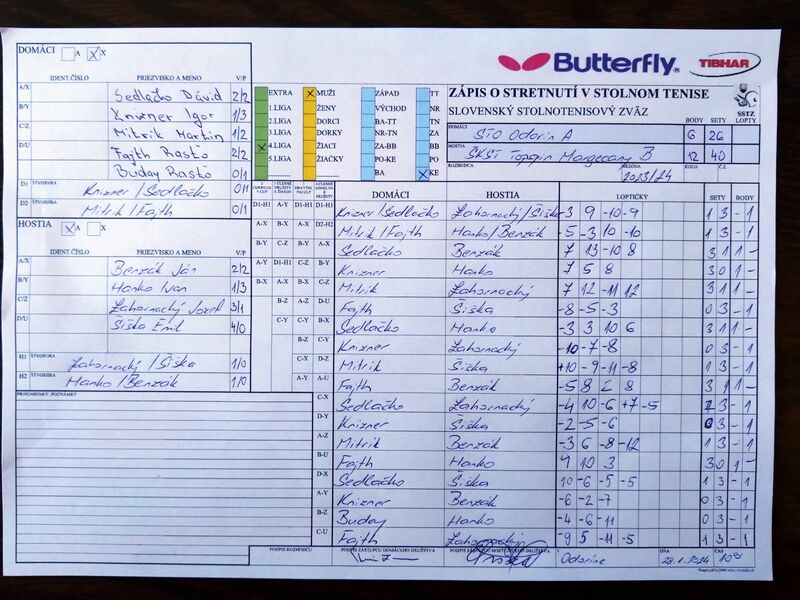 DOMÁCI A X
IDENT.ČÍSLO PRIEZVISKO A MENO V/P
A/X Sedlačko Dávid 2/2
B/Y Knizner Igor 1/3
C/Z Mitrik Martin 1/2
D/U Fajth Rasťo 2/2
Buday Rasťo 0/1
D1 ŠTVORHRA Knizner/Sedlačko 0/1
D2 ŠTVORHRA Mitrik/Fajth 0/1
HOSTIA A X
IDENT.ČÍSLO PRIEZVISKO A MENO V/P
A/X Benzák Ján 2/2
B/Y Hanko Ivan 1/3
C/Z Zahornacký Jozef 3/1
D/U Šiška Emil 4/0
H1 ŠTVORHRA Zahornacký/Šiška 1/0
H2 ŠTVORHRA Hanko/Benzák 1/0
PRIPOMIENKY, POZNÁMKY
Butterfly TIBHAR
EXTRA MUŽI ZÁPAD TT
1.LIGA ŽENY VÝCHOD NR
2.LIGA DORCI BA-TT TN
3.LIGA DORKY NR-TN ZA
4.LIGA ŽIACI ZA-BB BB
5.LIGA ŽIAČKY PO-KE PO
BA KE
ZÁPIS O STRETNUTÍ V STOLNOM TENISE
SLOVENSKÝ STOLNOTENISOVÝ ZVÄZ
SSTZ
BODY SETY LOPTY
DOMÁCI STO Odorín A 6 26
HOSTIA ŠKST Topspin Margecany B 12 40
ROZHODCA SEZÓNA 2023/24 KOLO Č.Z.
DOMÁCI HOSTIA LOPTIČKY SETY BODY
D1-H1 A-Y D1-H1 D1-H1 Knizner/Sedlačko Zahornacký/Šiška -3 9 -10 -9 1 3 - 1
A-X B-X A-X D2-H2 Mitrik/Fajth Hanko/Benzák -5 -3 10 -10 1 3 - 1
B-Y C-Z B-Y A-X Sedlačko Benzák 7 13 -10 8 3 1 1 -
A-Y D1-H1 C-Z B-Y Knizner Hanko 7 5 8 3 0 1 -
B-X A-X B-X C-Z Mitrik Zahornacký 7 12 -11 12 3 1 1 -
B-Z A-Z D-U Fajth Šiška -8 -5 -3 0 3 - 1
C-Y C-Y B-X Sedlačko Hanko -3 3 10 6 3 1 1 -
B-Z C-Y Knizner Zahornacký -10 -7 -8 0 3 - 1
C-X D-Z Mitrik Šiška +10 -9 -11 -8 1 3 - 1
A-Y A-U Fajth Benzák -5 8 2 8 3 1 1 -
C-X Sedlačko Zahornacký -4 10 -6 +7 -5 2 3 - 1
D-Y Knizner Šiška -2 -5 -6 0 3 - 1
A-Z Mitrik Benzák -3 6 -8 -12 1 3 - 1
B-U Fajth Hanko 9 10 3 3 0 1 -
D-X Sedlačko Šiška 10 -6 -5 -5 1 3 - 1
A-Y Knizner Benzák -6 -2 -7 0 3 - 1
B-Z Buday Hanko -4 -6 -11 0 3 - 1
C-U Fajth Zahornacký -9 5 -11 -5 1 3 - 1
PODPIS ROZHODCU PODPIS ZÁSTUPCU DOMÁCEHO DRUŽSTVA V Odoríne DŇA 28.1.2024 ČAS